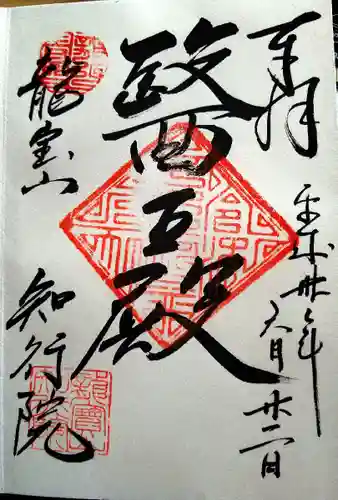 奉拝
平成廿七年
六月廿二日
醫王殿
龍宝山
知行院